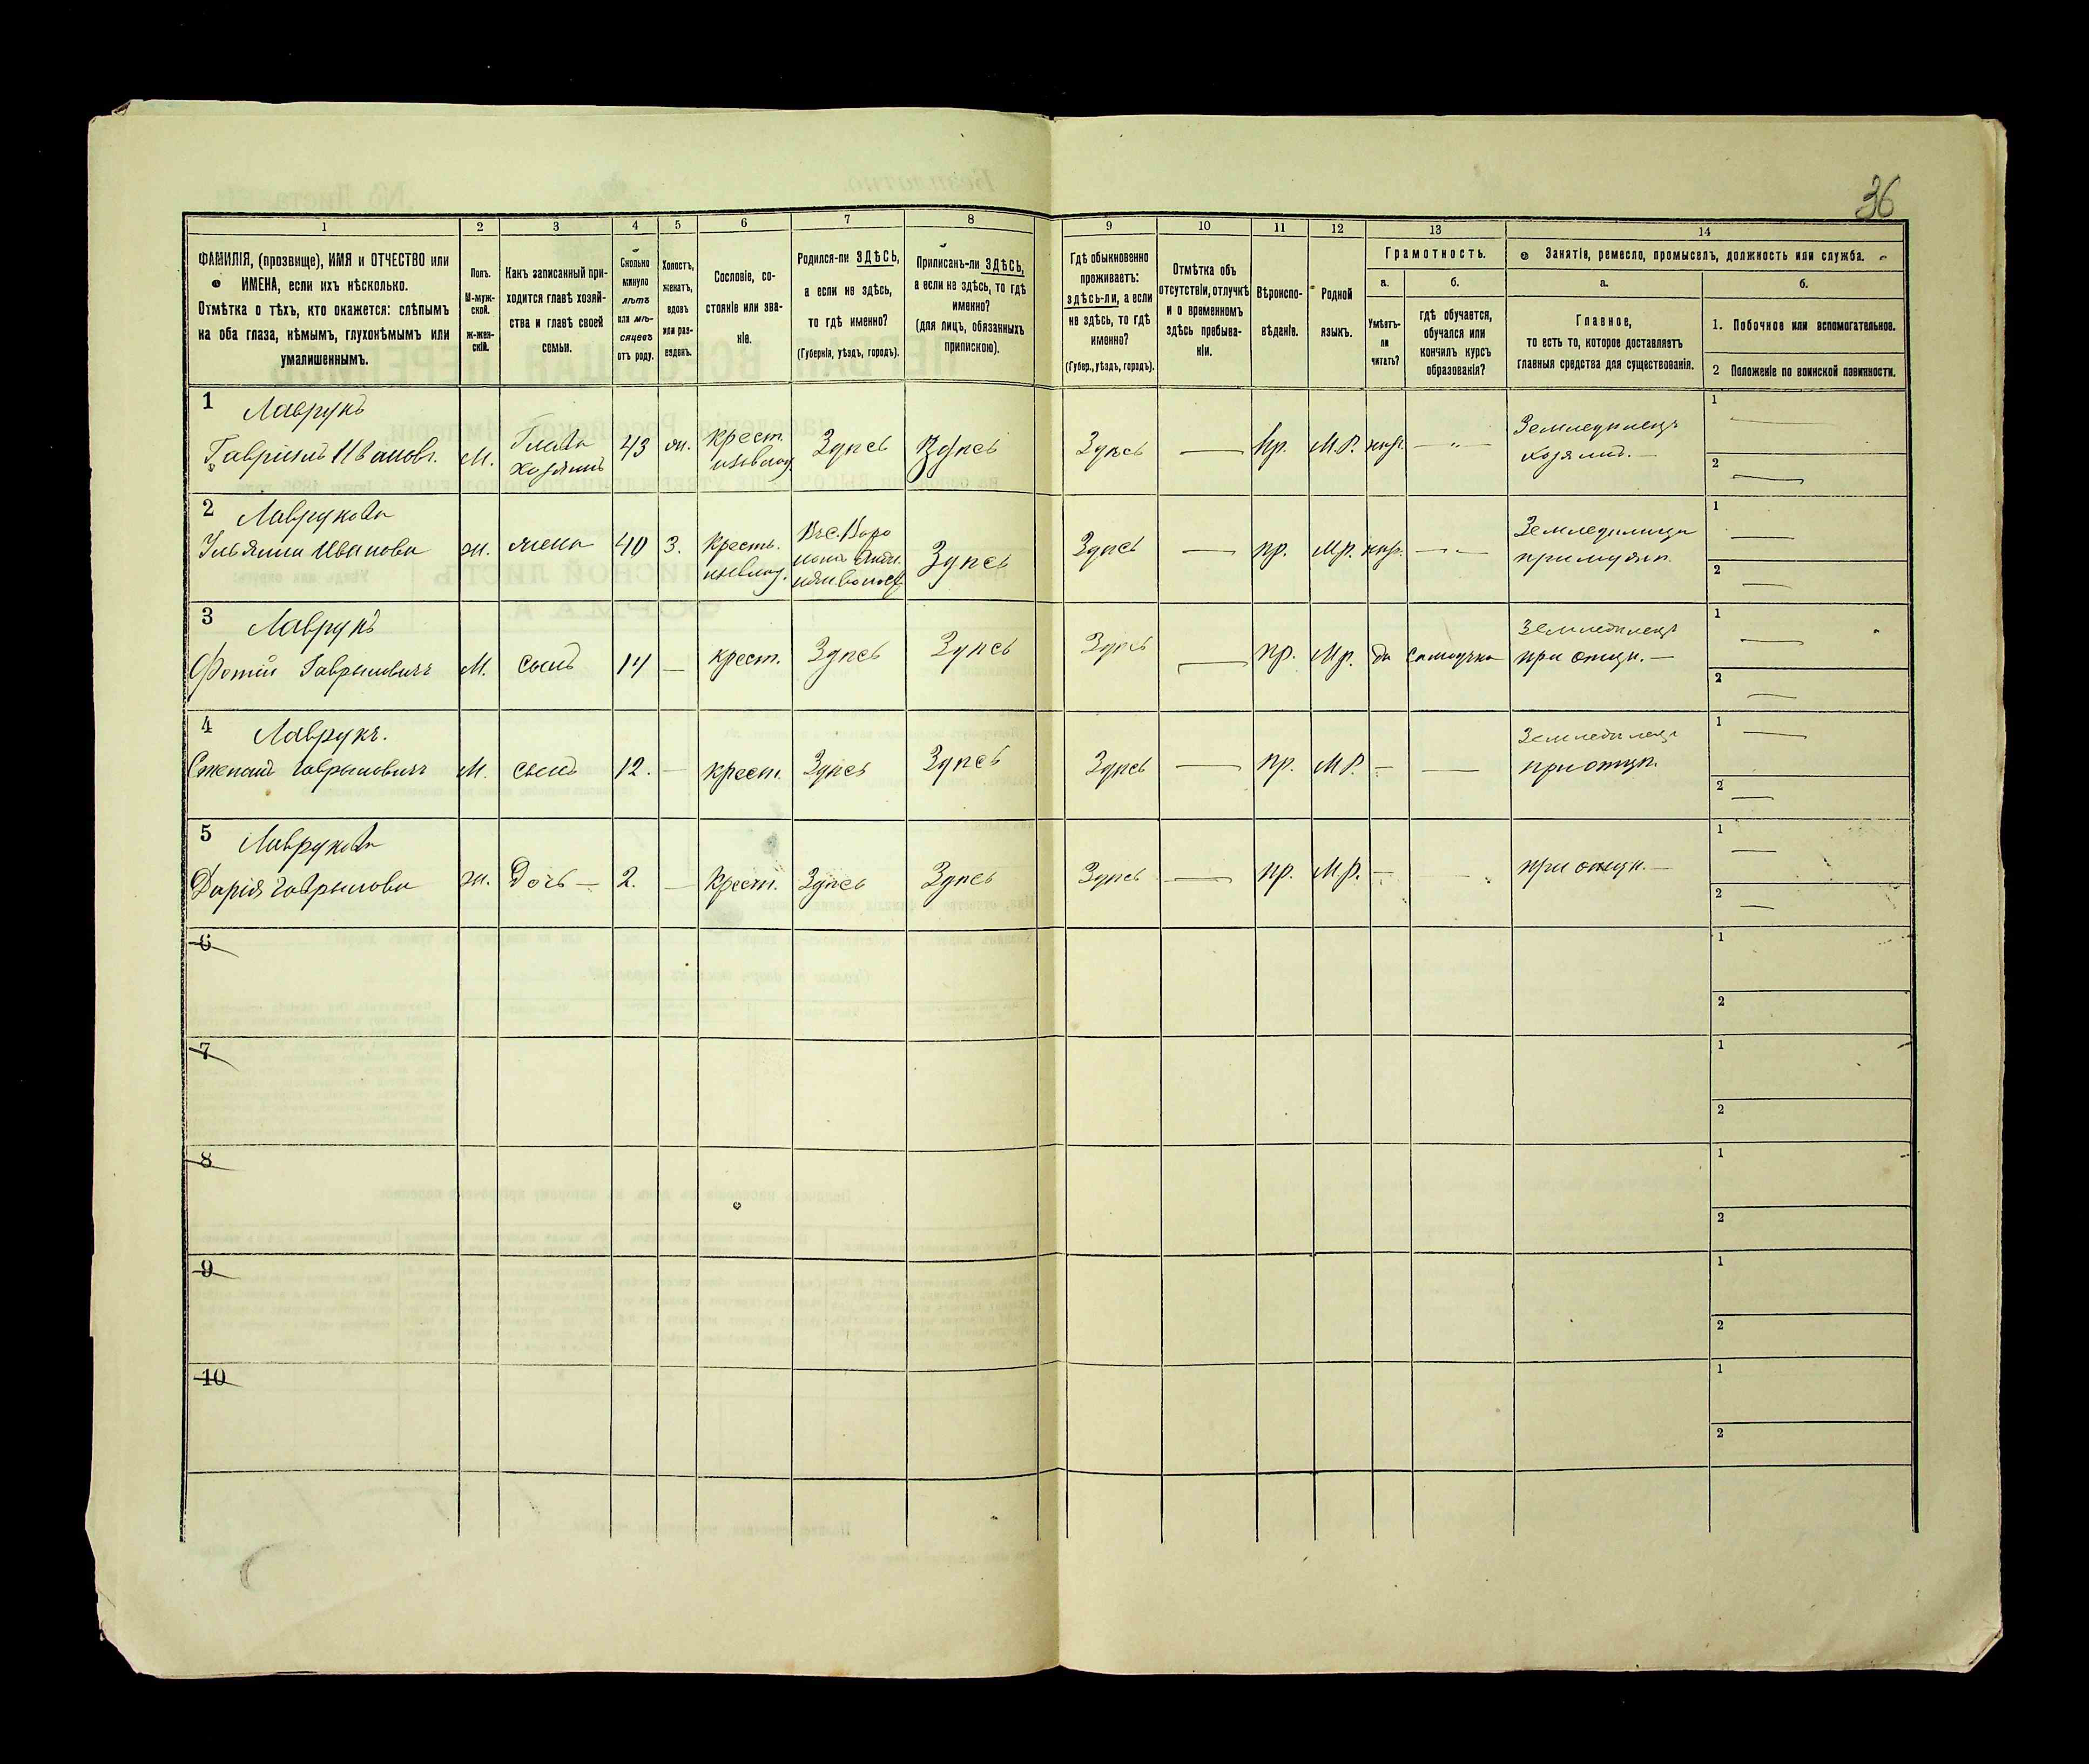 36
1 2 3 4 5 6 7 8 9 10 11 12 13 14
ФАМИЛІЯ, (прозвище), ИМЯ и ОТЧЕСТВО или
ИМЕНА, если ихъ нѣсколько.
Отмѣтка о тѣхъ, кто окажется: слѣпымъ
на оба глаза, нѣмымъ, глухонѣмымъ или
умалишеннымъ.
Полъ.
М-муж-
ской.
ж-жен-
скій.
Какъ записанный при-
ходится главѣ хозяй-
ства и главѣ своей
семьи.
Сколько
минуло
лѣтъ
или мѣ-
сяцевъ
отъ роду.
Холостъ,
женатъ,
вдовъ
или раз-
веденъ.
Сословіе, со-
стояніе или зва-
ніе.
Родился-ли ЗДѢСЬ,
а если не здѣсь,
то гдѣ именно?
(Губернія, уѣздъ, городъ).
Приписанъ-ли ЗДѢСЬ,
а если не здѣсь, то гдѣ
именно?
(для лицъ, обязанныхъ
припискою).
Гдѣ обыкновенно
проживаетъ:
здѣсь-ли, а если
не здѣсь, то гдѣ
именно?
(Губер., уѣздъ, городъ).
Отмѣтка объ
отсутствіи, отлучкѣ
и о временномъ
здѣсь пребыва-
ніи.
Вѣроиспо-
вѣданіе.
Родной
языкъ.
Грамотность.
а.
Умѣетъ-
ли
читать?
б.
гдѣ обучается,
обучался или
кончилъ курсъ
образованія?
Занятіе, ремесло, промыселъ, должность или служба.
а.
Главное,
то есть то, которое доставляетъ
главныя средства для существованія.
б.
1. Побочное или вспомогательное.
2 Положеніе по воинской повинности.
1 Лаврукъ
Гавріилъ Ивановъ. М. Глава хозяинъ 43 ж. крест. Здѣсь Здѣсь Здѣсь — пр. М.Р. — Земледѣлецъ
хозяинъ. —
1 —
2 —
2 Лаврукова
Ульянна Иванова ж. жена 40 З. Кресть. Здѣсь Здѣсь — пр. Мр. — Земледѣлица
при мужѣ.
1 —
2 —
3 Лаврукъ
Фотій Гавриловичъ М. сынъ 14 — крест. Здѣсь Здѣсь Здѣсь — пр. Мр. да самоучка Земледѣлецъ
при отцѣ. —
1 —
2 —
4 Лаврукъ.
Степанъ Гавриловичъ М. сынъ 12. — крест. Здѣсь Здѣсь Здѣсь — пр. М.Р. — — Земледѣлецъ
при отцѣ.
1 —
2 —
5 Лаврукова
Дарія Гаврилова ж. дочь — 2. — Крест. Здѣсь Здѣсь Здѣсь — пр. М.р. — — при отцѣ. —
1 —
2 —
6
1
2
7
1
2
8
1
2
9
1
2
10
1
2